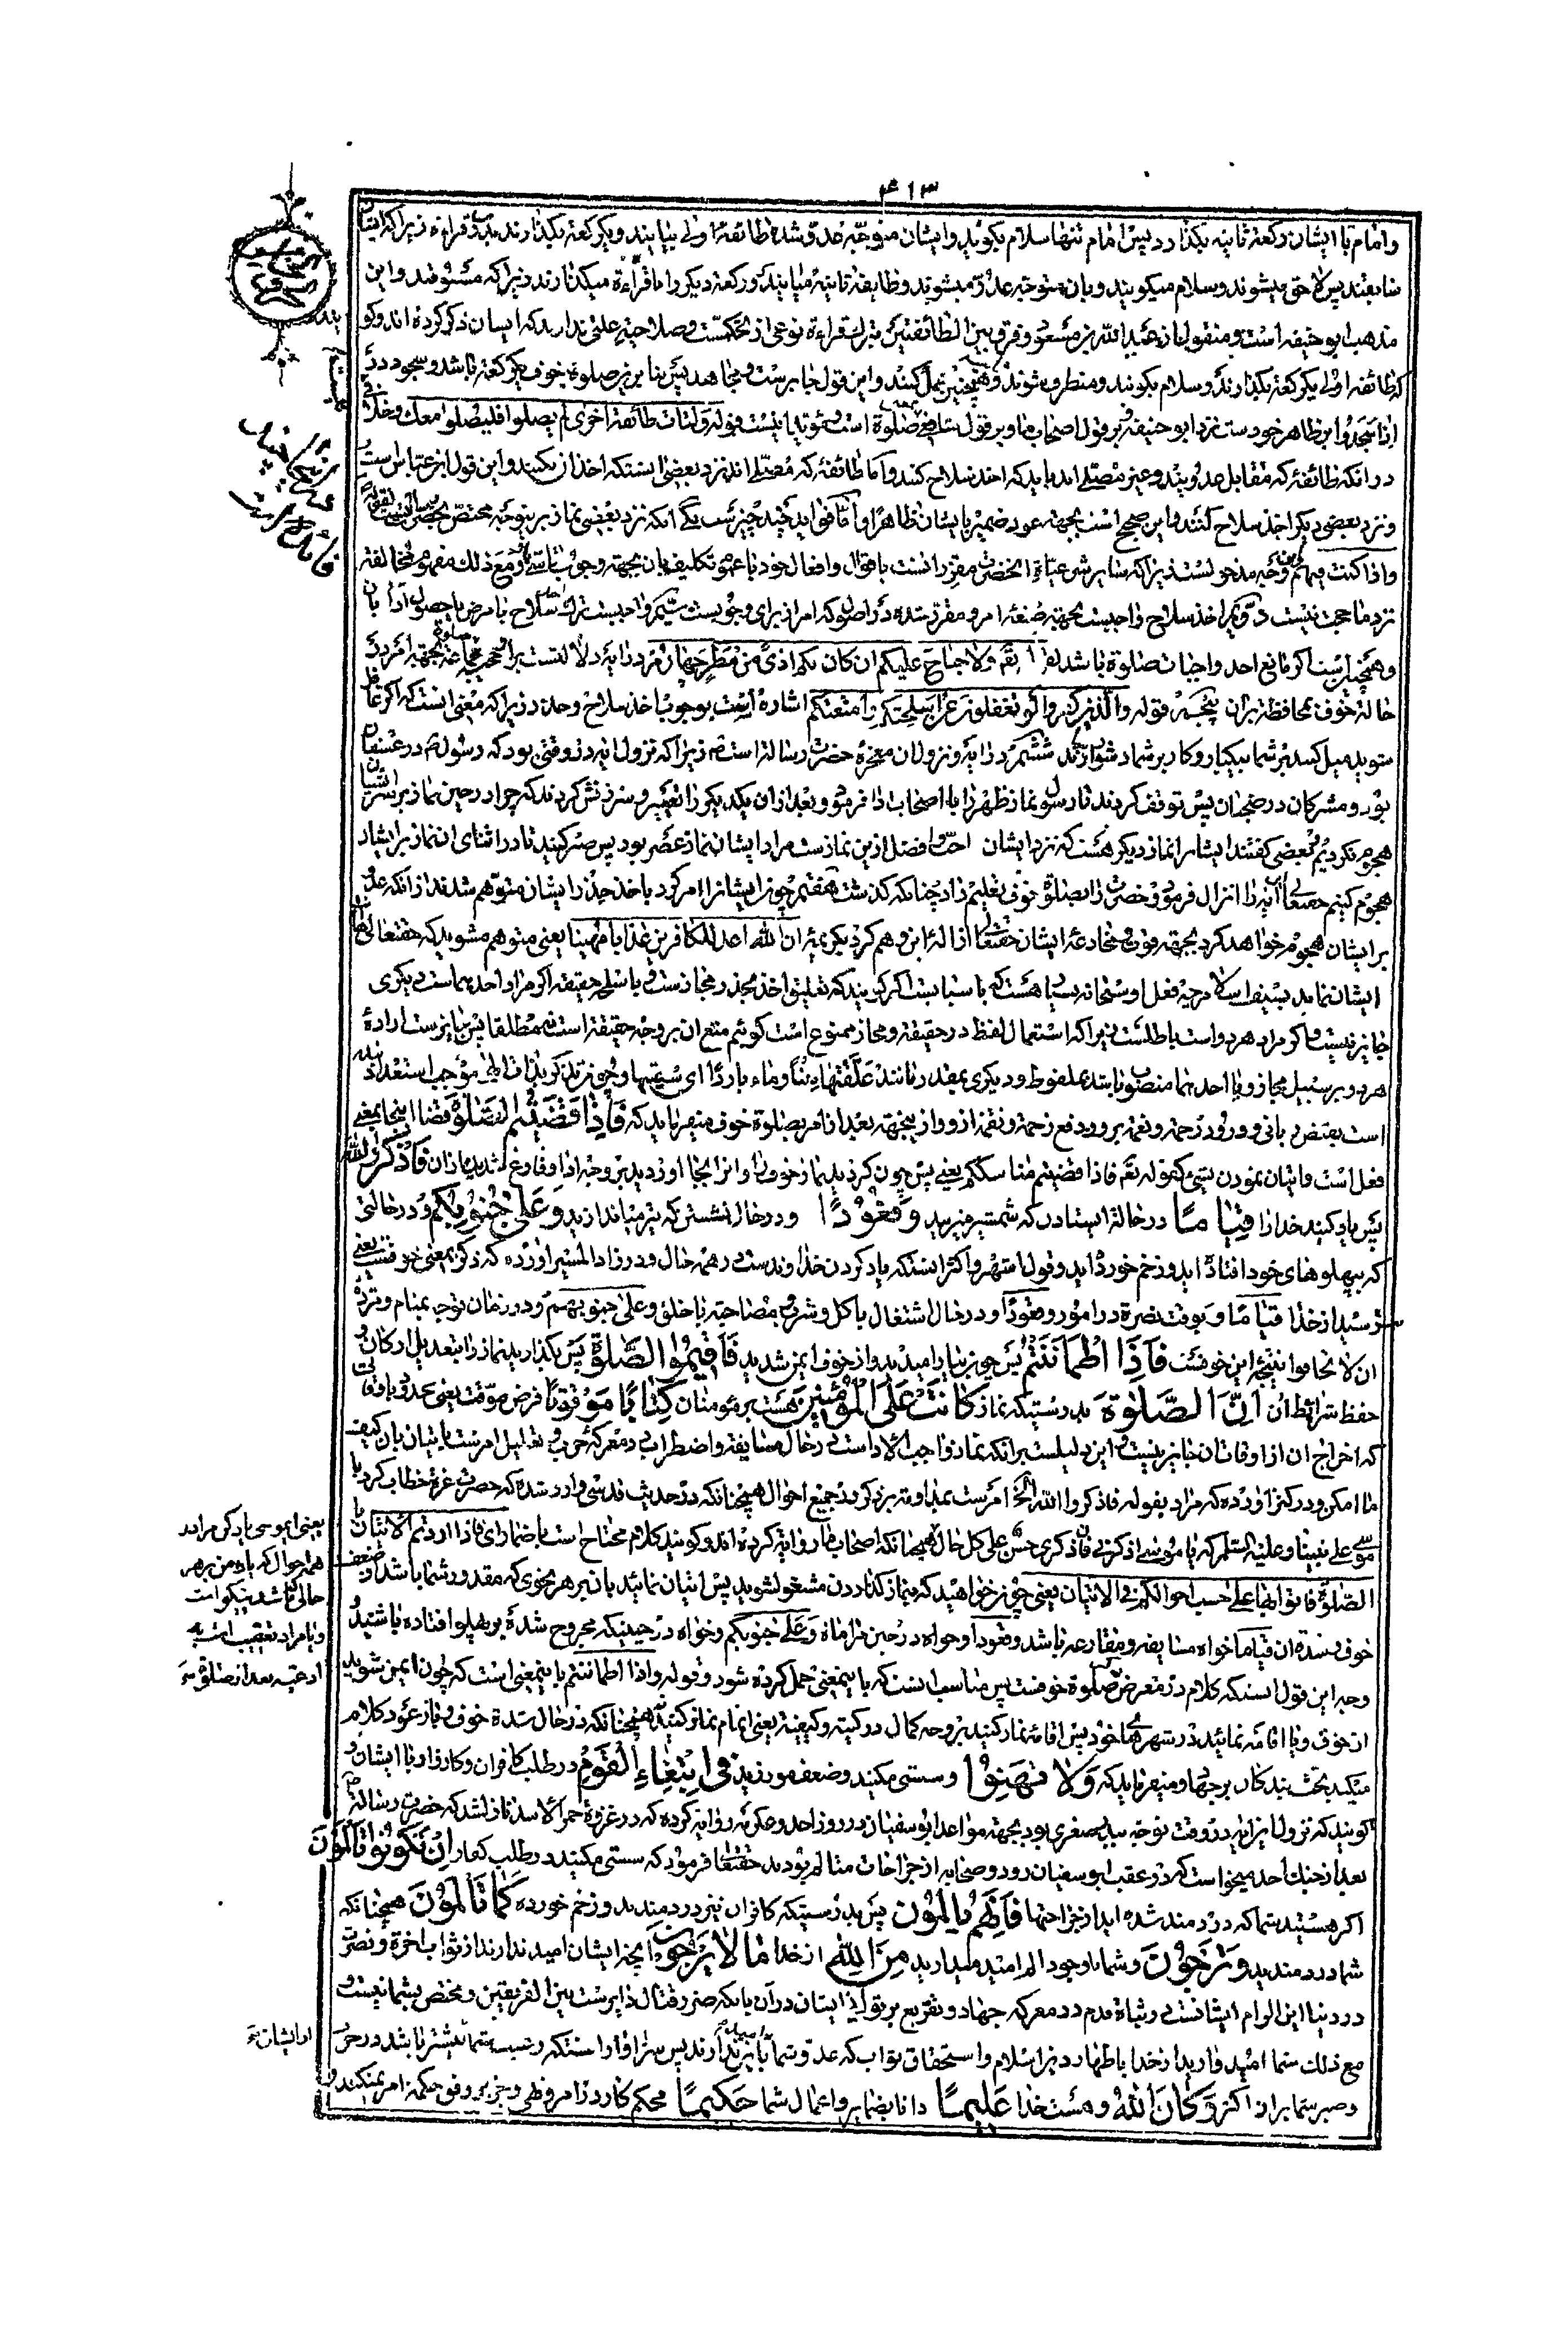 ۴۱۳
و امام با ایشان رکعة ثانیه بگذارد پس امام تنها سلام بگوید و ایشان متوجه عدو شده طائفهٔ اولی بیایند و یکرکعة بگذارند بی قراءة زیرا که ایشان
سابقند پس لاحق میشوند و سلام میگویند و بان متوجه عدو میشوند و طایفهٔ ثانیه میایند و رکعة دیگر را با قراءة میگذارند زیرا که مسبوقند و این
مذهب ابو حنیفه است و منقول از عبد الله بن مسعود و فرق بین الطائفتین بترک قراءة نوعی از تحکمست و صلاحیة علیة ندارد که ایشان ذکر کرده اند و گو
که طائفه اولی یکرکعة بگذارند و سلام بگویند و منصرف شوند و همچنین عمل کنند و این قول جابرست و مجاهد پس بنا برین صلوة خوف یکرکعة باشد و سجود در
اذا سجدوا بر ظاهر خودست نزد ابو حنیفه و بر قول اصحاب ما و بر قول شافعی صلوة است و مؤید اینست قوله ولتات طائفة اخری لم یصلوا فلیصلوا معک و خلاف
در آنکه طائفهٔ که مقابل عدویند و غیر مصلی اند باید که اخذ سلاح کنند و اما طائفهٔ که مصلی اند نزد بعضی انستکه اخذ ان نکنند و این قول ابن عباس است
و نزد بعضی دیگر اخذ سلاح کنند و این صحیح است بجهة عود ضمیر بایشان ظاهرا و اما فواید چند چیزست یکی آنکه نزد بعضی نماز برین وجه مختص بحضرت رسالتست لقوله
و اذا کنت فیهم و این وجه مدخولست زیرا که سایر شرعیات آنحضرت مقررانست باقوال و افعال خود با عموم تکلیف بان بجهة وجوب تاسی و مع ذلک مفهوم مخالفة
نزد ما حجت نیست دوم آنکه اخذ سلاح واجبست بجهة صیغه امر و مقرر شده در اصول که امر از برای وجوبست سیم واجبست ترک اخذ سلاح با مرض یا حصول اذا بان
و همچنین است اگر مانع احد واجبات صلوة باشد لقوله تعم ولا جناح علیکم ان کان بکم اذی من مطر چهارم در آیه دلالتست بر وجوب صلوة جماعة بجهة امر در
حالة خوف بمحافظة بران پنجم قوله والذین کفروا لو تغفلون عن اسلحتکم و امتعتکم اشاره است بوجوب اخذ سلاح و حذر زیرا که معنی انست که اگر غافل
شوید میل کنند بر شما بیکبار و کار بر شما دشوار کنند ششم در آیه و نزول ان معجزهٔ حضرت رسالة است ص زیرا که نزول ایه در وقتی بود که رسول ص در عسفان
بود و مشرکان در ضجنان پس توقف کردند تا رسول نماز ظهر را با اصحاب ادا فرمود و بعد از ان یکدیگر را تعییر و سرزنش کردند که چرا در حین نماز بر سر ایشان
هجوم نکردیم و بعضی گفتند ایشانرا نماز دیگر هست که نزد ایشان احب و افضل ازین نمازست مراد ایشان نماز عصر بود پس صبر کنید تا در اثنای ان نماز بر ایشان
هجوم کنیم حقتعالی این آیه را انزال فرمود و حضرت را بصلوة خوف تعلیم داد چنانکه گذشت هفتم چون ایشانرا امر کرد باخذ حذر ایشان متوهم شدند از انکه عدو
بر ایشان هجوم خواهد کرد بجهة قوت و مخادعهٔ ایشان حقتعالی ازالهٔ این وهم کرد بکریمهٔ ان الله اعد للکافرین عذابا مهینا یعنی متوهم مشوید که حقتعالی اهانت
ایشان نماید بسیف اسلام چه فعل او سبحانه بی اسباب هست که باسبابست اگر گویند که تعلیق اخذ بحذر مجازست و باسلحه حقیقه اگر مراد احد هماست دیگری
جایز نیست و اگر مراد هر دو است باطلست زیرا که استعمال لفظ در حقیقة و مجاز ممنوع است گوئیم منع ان بر وجه حقیقة است نه مطلقا پس جایزست ارادهٔ
هر دو بر سبیل مجاز و یا احدهما منصوب باشد بملفوظ و دیگری بمقدر مانند علفتها تبنا و ماء باردا ای سقیتها و چون تذکر یاد الهی موجب استعداد بنده
است بفیض ربانی و ورود رحمة و نعمة برو و دفع زحمة و نقمة ازو از ینجهة بعد از امر بصلوة خوف میفرماید که فَاِذا قَضَیْتُمُ الصَّلٰوةَ قضا اینجا بمعنی
فعل است و اتیان نمودن بشی کقوله تعم فاذا قضیتم مناسککم یعنی پس چون کردید نماز خوف را و انرا بجا اوردید بر وجه ادا و فارغ شدید از ان فَاذْکُرُوا اللهَ
پس یاد کنید خدا را قِیٰامًا در حالة ایستادن که شمشیر میزنید وَ قُعُوداً و در حال نشستن که تیر میاندازید وَ عَلٰی جُنُوبِکُمْ و در حالتی
که بپهلوهای خود افتاده اید و زخم خورده اید و قول اشهر و اکثر انستکه یاد کردن خداوندست در همه حال و در زاد المسیر اورده که ذکر بمعنی خوفست یعنی
بترسید از خدا قیاما و بوقت نصرة در امور و قعودا و در حال اشتغال باکل و شرب و مصاحبة با خلق و علی جنوبهم و در زمان توجه بمنام و ثمرهٔ
ان لا تخافوا نتیجهٔ این خوفست فَاِذَا اطْمَأْنَنْتُمْ پس چون بیارامیدید و از خوف ایمن شدید فَاَقیمُوا الصَّلٰوةَ پس بگذارید نماز را بتعدیل ارکان و
حفظ شرائط ان اِنَّ الصَّلٰوةَ بدرستیکه نماز کٰانَتْ عَلَی الْمُؤْمِنینَ هست بر مومنان کِتٰابًا مَوْقُوتًا فرض موقت یعنی محدود باوقاتی
که اخراج ان از اوقات ان جایز نیست و این دلیلست برانکه نماز واجب الاداست در حال مسایفة و اضطراب در معرکهٔ حرب و تعلیل امرست باتیان بان کیف
ما امکن و در کنز اورده که مراد بقوله فاذکروا الله الخ امرست بمداومة بر ذکر در جمیع احوال همچنانکه در حدیث قدسی وارد شده که حضرت عزة خطاب کرد با
موسی علی نبینا و علیه السلام که یا موسی اذکرنی فان ذکری حسن علی کل حال همچنانکه اصحاب ما روایة کرده اند و گویند کلام محتاج است باضمار ای فاذا اردتم الاتیان
الصلوة فاتوا بها علی حسب احوالکم فی الاتیان یعنی چون خواهید که بنماز گذاردن مشغول شوید پس اتیان نمائید بان بر هر نحوی که مقدور شما باشد و
خوف بشدة ان قیاما خواه مسایفه و مقارعه باشد و قعودا و خواه در حین مراماة و علی جنوبکم و خواه در حینیکه مجروح شدهٔ بر پهلو افتاده باشید
وجه این قول انستکه کلام در معرض صلوة خوفست پس مناسب انست که باینمعنی حمل کرده شود و قوله و اذا اطماننتم باینمعنی است که چون ایمن شوید
از خوف و یا اقامة نمائید در شهرهای خود پس اقامة نماز کنید بر وجه کمال در کمیة و کیفیة یعنی اتمام نماز کنید نه همچنانکه در حال شدة خوف و باز عود کلام
میکند بحث بندگان بر جهاد و میفرماید که وَ لٰا تَهِنُوا و سستی مکنید و ضعف مورزید فی ابْتِغٰاءِ الْقَوْمِ در طلب کافران و کارزار با ایشان و
گویند که نزول این ایه در وقت توجه ببدر صغری بود بجهة مواعد ابو سفیان در روز احد و عکرمه روایة کرده که در غزوهٔ حمراء الاسد نازل شد که حضرت رسالة ص
بعد از جنک احد میخواست که در عقب ابو سفیان رود و صحابه از جراحات متالم بودند حقتعالی فرمود که سستی مکنید در طلب کفار اِنْ تَکُونُوا تَأْلَمُونَ
اگر هستید شما که دردمند شده اید از جراحتها فَاِنَّهُمْ یَأْلَمُونَ پس بدرستیکه کافران نیز دردمندند و زخم خورده کَمٰا تَأْلَمُونَ همچنانکه
شما دردمندید وَ تَرْجُونَ و شما با وجود الم امید میدارید مِنَ اللهِ از خدا مٰا لٰا یَرْجُونَ آنچه ایشان امید ندارند از ثواب اخرة و نصرت
در دنیا این الزام ایشانست در ثبات قدم در معرکه جهاد و تقریع بر توانی ایشان در آن بانکه ضرر قتال دایرست بین الفریقین و مختص بشما نیست و
مع ذلک شما امید دارید از خدا باظهار دین اسلام و استحقاق ثواب که عدو شما بان امید ندارند پس سزاوار انستکه رغبت شما بیشتر باشد در حرب
و صبر شما بران اکثر وَ کٰانَ اللهُ و هست خدا عَلیمًا دانا بضمایر و اعمال شما حَکیمًا محکم کار در امر و نهی و جز بر وفق حکمة امر نمیکند و
یعنی ایموسی یاد کن مرا در
همه احوال که یاد من بر هر
حالی که باشد نیکو است
و یا مراد تعقیب است به
ادعیه بعد از صلوة
از ایشان